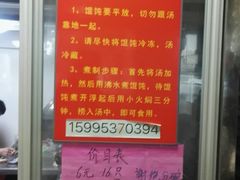 1、馄饨要平放，切勿跟汤
靠地一起。
2、请尽快将馄饨冷冻，汤
冷藏。
3、煮制步骤：首先将汤加
热，然后用沸水煮馄饨，待馄
饨煮开浮起后用小火焖三分
钟，捞入汤中，即可食用。
15995370394
价目表
6元 16只